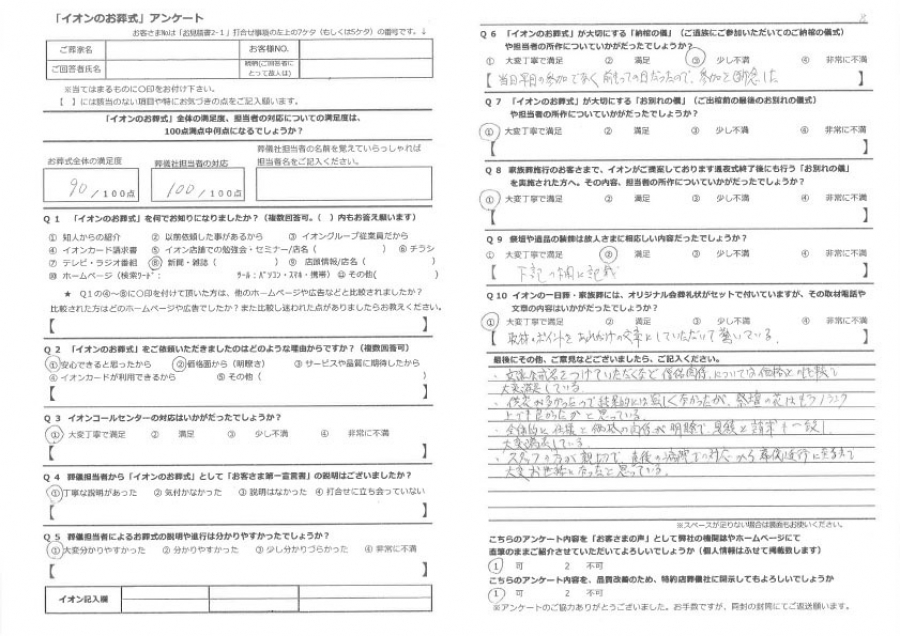 「イオンのお葬式」アンケート
お客さまNo.は「お見積書2-1」打合せ事項の左上の7ケタ（もしくは5ケタ）の番号です。↓
ご葬家名
お客様NO.
ご回答者氏名
続柄(ご回答者にとって故人は)
※当てはまるものに○印をお付け下さい。
【　】には該当のない項目や特にお気づきの点をご記入願います。
「イオンのお葬式」全体の満足度、担当者の対応についての満足度は、
100点満点中何点になるでしょうか？
葬儀社担当者の名前を覚えていらっしゃれば
担当者名をご記入ください。
お葬式全体の満足度
葬儀社担当者の対応
90／100点
100／100点
Q 1 「イオンのお葬式」を何でお知りになりましたか？（複数回答可。（　）内もお答え願います）
① 知人からの紹介　② 以前依頼した事があるから　③ イオングループ従業員だから
④ イオンカード請求書　⑤ イオン店舗での勉強会・セミナー/店名（　）　⑥ チラシ
⑦ テレビ・ラジオ番組　⑧ 新聞・雑誌（　）　⑨ 店頭情報/店名（　）
⑩ ホームページ（検索ワード：　ツール：パソコン・スマホ・携帯）　⑪ その他(　)
★ Q1の④～⑧に○印を付けて頂いた方は、他のホームページや広告などと比較されましたか？
比較された方はどのホームページや広告でしたか？また比較し迷われた点がありましたらお教えください。
【　】
Q 2 「イオンのお葬式」をご依頼いただきましたのはどのような理由からですか？（複数回答可）
① 安心できると思ったから　② 価格面から（明瞭さ）　③ サービスや品質に期待したから
④ イオンカードが利用できるから　⑤ その他（　）
【　】
Q 3 イオンコールセンターの対応はいかがだったでしょうか？
① 大変丁寧で満足　② 満足　③ 少し不満　④ 非常に不満
【　】
Q 4 葬儀担当者から「イオンのお葬式」として「お客さま第一宣言書」の説明はございましたか？
① 丁寧な説明があった　② 気付かなかった　③ 説明はなかった　④ 打合せに立ち会っていない
【　】
Q 5 葬儀担当者によるお葬式の説明や進行は分かりやすかったでしょうか？
① 大変分かりやすかった　② 分かりやすかった　③ 少し分かりづらかった　④ 非常に不満
【　】
イオン記入欄
8
Q 6 「イオンのお葬式」が大切にする「納棺の儀」（ご遺族にご参加いただいてのご納棺の儀式）
や担当者の所作についていかがだったでしょうか？
① 大変丁寧で満足　② 満足　③ 少し不満　④ 非常に不満
Q 7 「イオンのお葬式」が大切にする「お別れの儀」（ご出棺前の最後のお別れの儀式）
や担当者の所作についていかがだったでしょうか？
① 大変丁寧で満足　② 満足　③ 少し不満　④ 非常に不満
【　】
Q 8 家族葬施行のお客さまで、イオンがご提案しております通夜式終了後にも行う「お別れの儀」
を実施された方へ。その内容、担当者の所作についていかがだったでしょうか？
① 大変丁寧で満足　② 満足　③ 少し不満　④ 非常に不満
【　】
Q 9 祭壇や遺品の装飾は故人さまに相応しい内容だったでしょうか？
① 大変丁寧で満足　② 満足　③ 少し不満　④ 非常に不満
【下記の欄に記載】
Q 10 イオンの一日葬・家族葬には、オリジナル会葬礼状がセットで付いていますが、その取材電話や
文章の内容はいかがだったでしょうか？
① 大変丁寧で満足　② 満足　③ 少し不満　④ 非常に不満
最後にその他、ご意見などございましたら、ご記入ください。
大変満足している
上でも良かったかと思っている。
大変満足している。
※スペースが足りない場合は裏面もお使いください。
こちらのアンケート内容を「お客さまの声」として弊社の機関誌やホームページにて
直筆のままご紹介させていただいてよろしいでしょうか（個人情報はふせて掲載致します）
1　可　2　不可
こちらのアンケート内容を、品質改善のため、特約店葬儀社に開示してもよろしいでしょうか
1　可　2　不可
※アンケートのご協力ありがとうございました。お手数ですが、同封の封筒にてご返送願います。